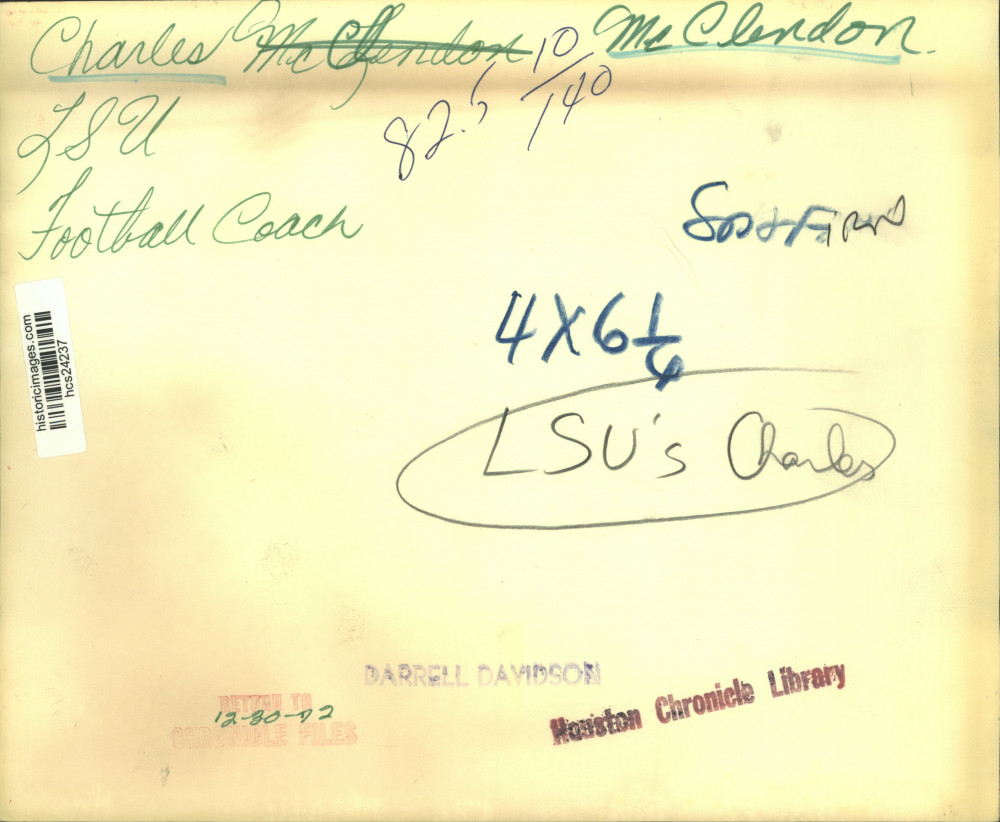 Charles McClendon McClendon.
82.5 10/140
LSU
Football Coach
4X6 1/4
LSU's Charles
historicimages.com
hcs24237
DARRELL DAVIDSON
RETURN TO
12-30-72
CHRONICLE FILES
Houston Chronicle Library